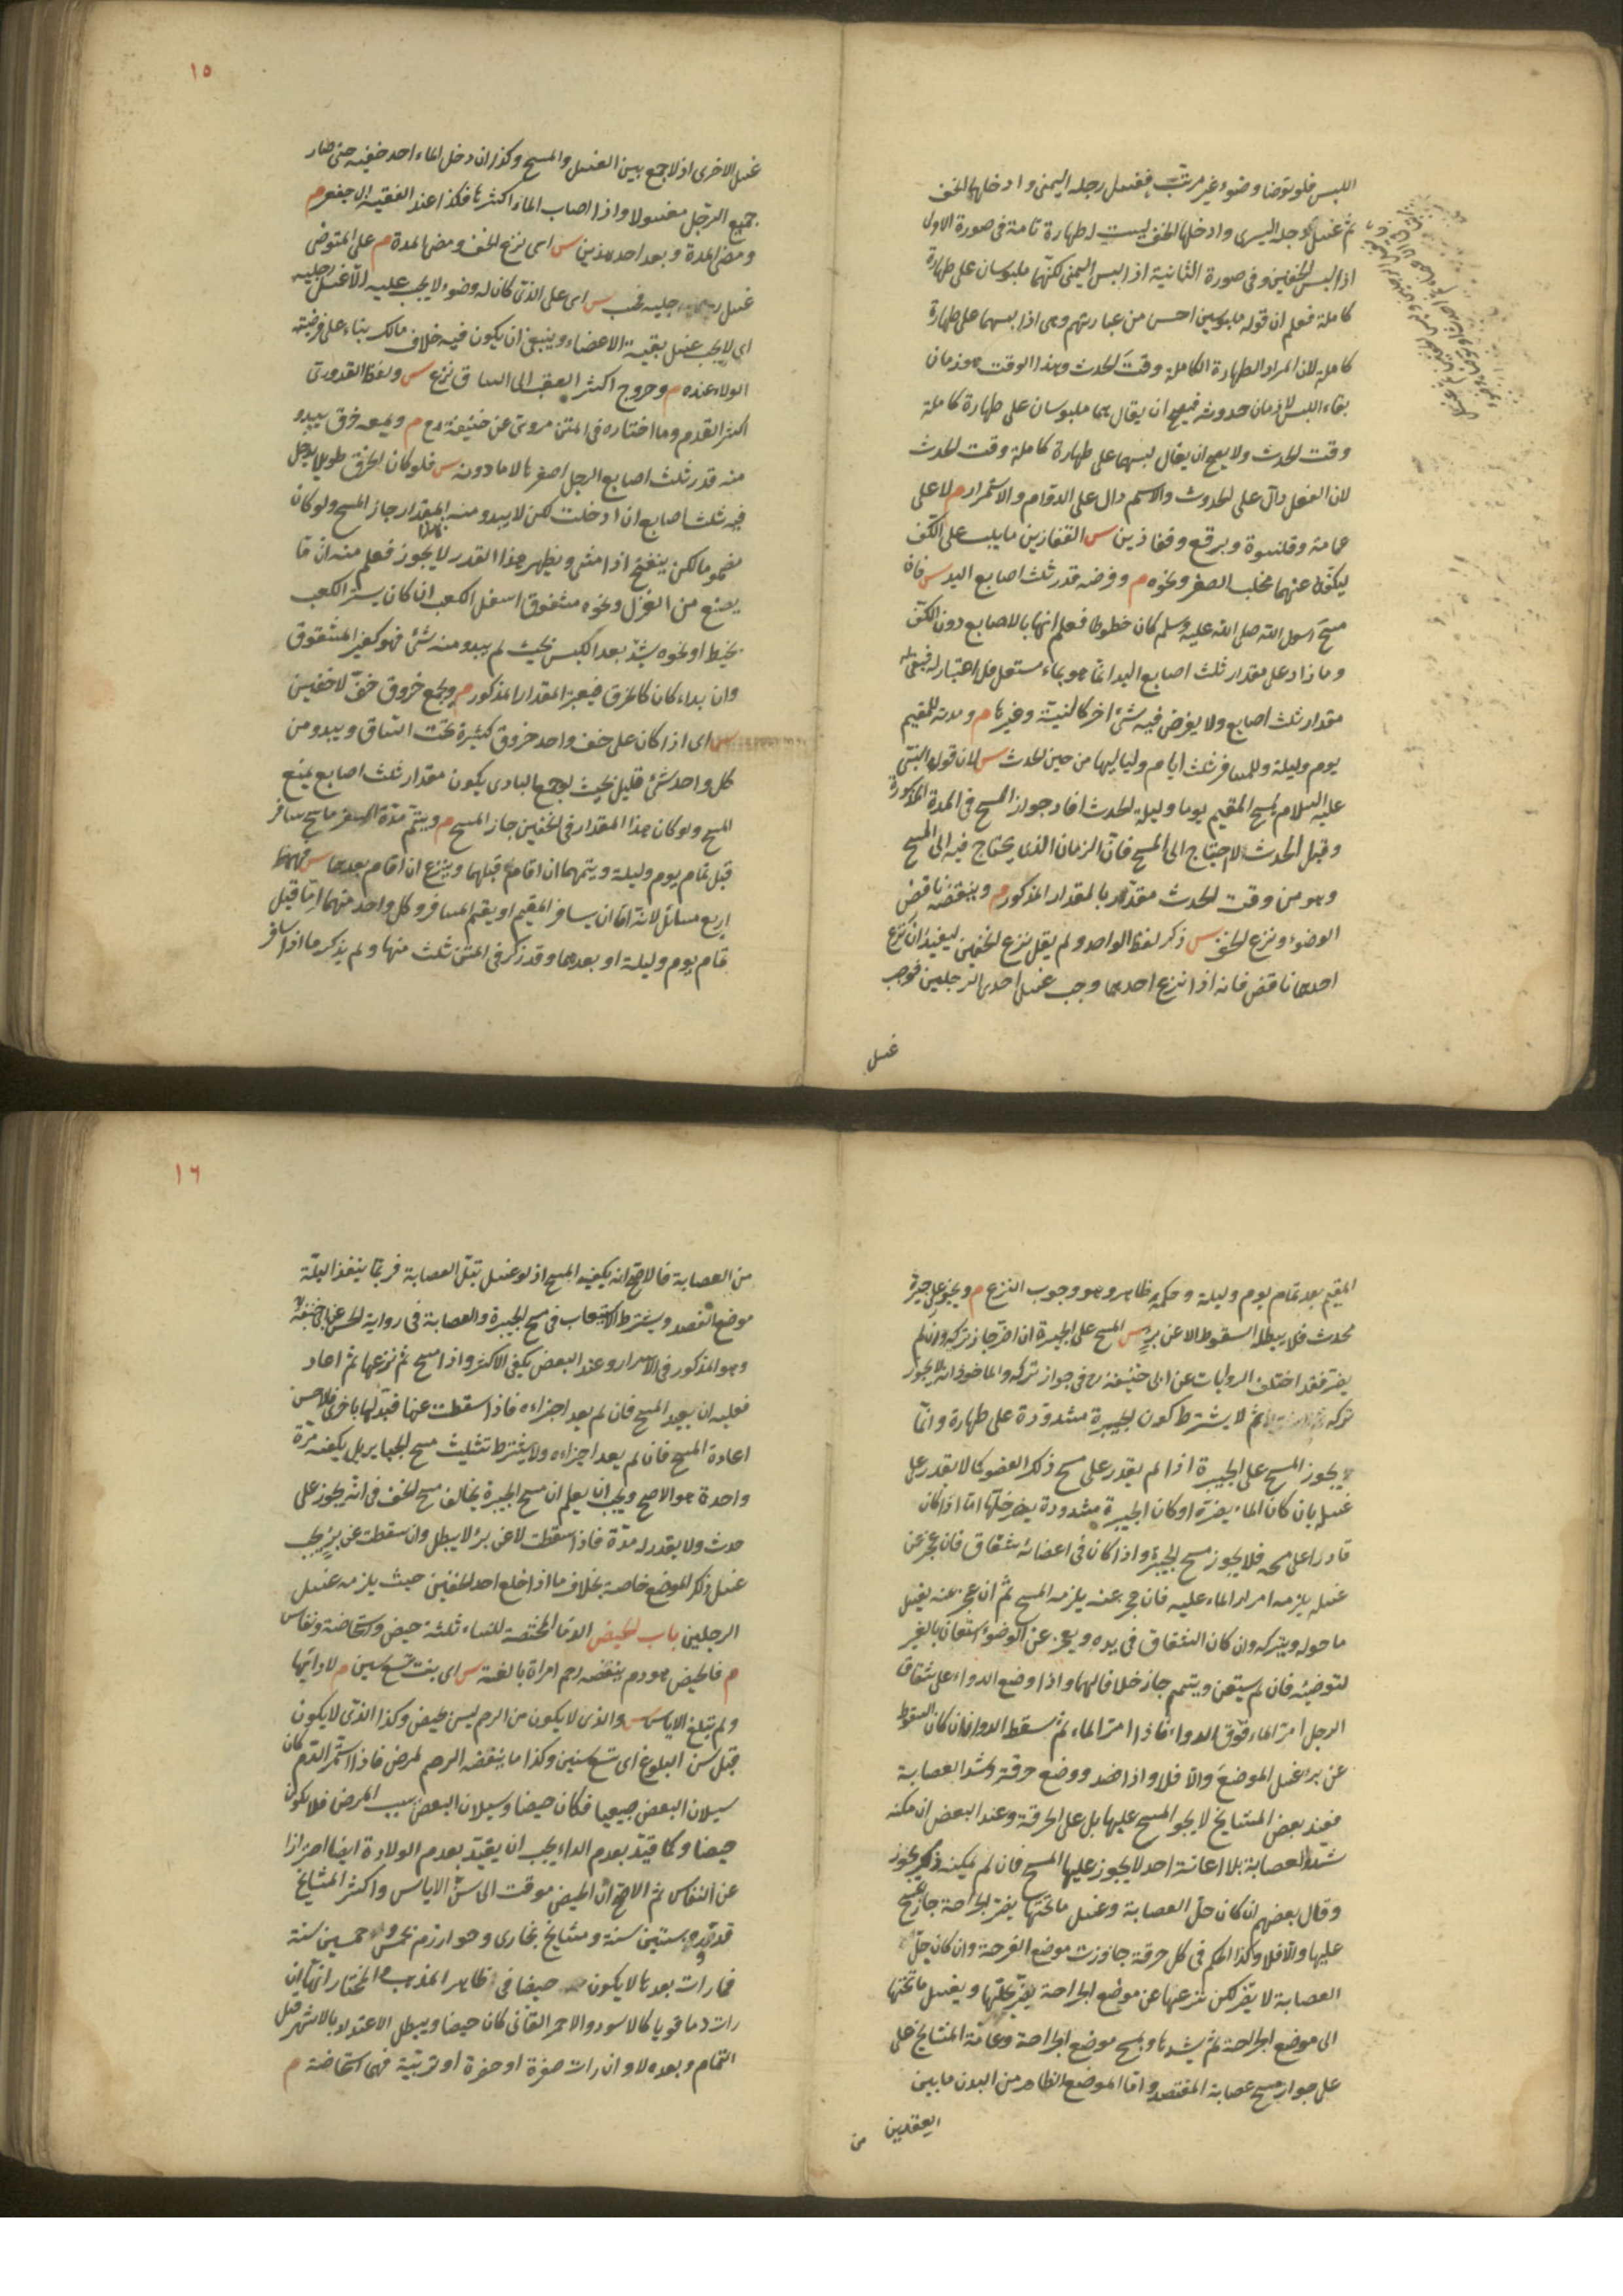 اللبس فلو توضا وضوء غير مرتب فغسل رجله اليمنى وادخلها الخف
ثم غسل رجله اليسرى وادخلها الخف ليست له طهارة تامة فى صورة الاولى
اذا لبس الخفين وفى صورة الثانية اذا لبس اليمنى لكنهما ملبوسان على طهارة
كاملة فعلم ان قوله ملبوسين احسن من عبارتهم وهى اذا لبسهما على طهارة
كاملة لان المراد الطهارة الكاملة وقت الحدث وهذا الوقت هو زمان
بقاء اللبس لا زمان حدوثه فيصح ان يقال هما ملبوسان على طهارة كاملة
وقت الحدث ولا يصح ان يقال لبسهما على طهارة كاملة وقت الحدث
لان الفعل دال على الحدوث والاسم دال على الدوام والاستمرار م لا على
عمامة وقلنسوة وبرقع وقفازين س القفازين ما يلبس على الكف
ليكف عنهما مخلب الصقر ونحوه م وفرضه قدر ثلث اصابع اليد س فان
مسح رسول الله صلى الله عليه وسلم كان خطوطا فعلم انها بالاصابع دون الكف
وما زاد على مقدار ثلث اصابع اليد انما هو بماء مستعمل فلا اعتبار له فبقى
مقدار ثلث اصابع ولا يفرض فيه شئ اخر كالنية وغيرها م ومدته للمقيم
يوم وليلة وللمسافر ثلث ايام ولياليها من حين الحدث س لان قوله
عليه السلام يمسح المقيم يوما وليلة الحدث افاد جواز المسح فى المدة المذكورة
وقبل الحدث لا احتياج الى المسح فان الزمان الذى يحتاج فيه الى المسح
وهو من وقت الحدث مقدر بالمقدار المذكور م وينقضه ناقض
الوضوء ونزع الخف س ذكر لفظ الواحد ولم يقل نزع الخفين ليفيد ان نزع
احدهما ناقض فانه اذا نزع احدهما وجب غسل احدى الرجلين فوجب
غسل
١٥
غسل الاخرى اذ لا جمع بين الغسل والمسح وكذا ان دخل الماء احد خفيه حتى صار
جميع الرجل مغسولا واذا اصاب الماء اكثرها فكذا عند الفقيه ابى جعفر م
ومضى المدة وبعد احد هذين س اى نزع الخف ومضى المدة م على المتوضى
غسل رجليه فحسب س اى على الذى كان له وضوء لا يجب عليه الا غسل رجليه
اى لا يجب غسل بقية الاعضاء وينبغى ان يكون فيه خلاف مالك بناء على فرضية
الولاء عنده م وخروج اكثر العقب الى الساق نزع س ولفظ القدورى
اكثر القدم وما اختاره فى المتن مروى عن حنيفة رح م ويمنعه خرق يبدو
منه قدر ثلث اصابع الرجل اصغرها لا ما دونه س فلو كان الخرق طويلا يدخل
فيه ثلث اصابع ان ادخلت لكن لا يبدو منه المقدار جاز المسح ولو كان
مضموما لكن ينفتح اذا مشى ويظهر هذا القدر لا يجوز فعلم منه ان ما
يصنع من الغزل ونحوه مشقوق اسفل الكعب ان كان يستر الكعب
بخيط او نحوه يشد بعد اللبس بحيث لم يبدو منه شئ فهو كغير المشقوق
وان بدا كان كالخرق فيعتبر المقدار المذكور م ويجمع خروق خف لا خفين
س اى اذا كان على خف واحد خروق كثيرة تحت الساق ويبدو من
كل واحد شئ قليل بحيث لو جمع البادى يكون مقدار ثلث اصابع يمنع
المسح ولو كان هذا المقدار فى الخفين جاز المسح م ويتم مدة السفر ماسح سافر
قبل تمام يوم وليلة ويتمهما ان اقام قبلهما وينزع ان اقام بعدهما س فههنا
اربع مسائل لانه اما ان يسافر المقيم او يقيم المسافر وكل واحد منهما اما قبل
تمام يوم وليلة او بعدهما وقد ذكر فى المتن ثلث منها ولم يذكر ما اذا سافر
المقيم بعد تمام يوم وليلة وحكمه ظاهر وهو وجوب النزع م ويجوز على جبيرة
محدث فلا يبطله السقوط الا عن برء س المسح على الجبيرة ان اضر جاز تركه وان لم
يضر فقد اختلف الروايات عن ابى حنيفة رح فى جواز تركه والماخوذ انه لا يجوز
تركه ثم لا يشترط كون الجبيرة مشدودة على طهارة وانما
يجوز المسح على الجبيرة اذا لم يقدر على مسح ذلك العضو كما لا يقدر على
غسله بان كان الماء يضره او كان الجبيرة مشدودة يضر حلها اما اذا كان
قادرا على مسحه فلا يجوز مسح الجبيرة واذا كان فى اعضائه شقاق فان عجز عن
غسله يلزمه امرار الماء عليه فان عجز عنه يلزمه المسح ثم ان عجز عنه يغسل
ما حوله ويتركه وان كان الشقاق فى يده ويعجز عن الوضوء استعان بالغير
لتوضيه فان لم يستعن وتيمم جاز خلافا لهما واذا وضع الدواء على شقاق
الرجل امر الماء فوق الدواء فاذا امر الماء ثم سقط الدواء فان كان السقوط
عن برء غسل الموضع والا فلا واذا فصد ووضع خرقة وشد العصابة
فعند بعض المشايخ لا يجوز المسح عليها بل على الخرقة وعند البعض ان امكنه
شد العصابة بلا اعانة احد لا يجوز عليها المسح فان لم يمكنه ذلك يجوز
وقال بعضهم ان كان حل العصابة وغسل ما تحتها يضر الجراحة جاز المسح
عليها والا فلا وكذا الحكم فى كل خرقة جاوزت موضع القرحة وان كان حل
العصابة لا يضر لكن نزعها عن موضع الجراحة يضر يحلها ويغسل ما تحتها
الى موضع الجراحة ثم يشدها ويمسح موضع الجراحة وعامة المشايخ على
على جواز مسح عصابة المفتصد واما الموضع الظاهر من البدن ما بين
العقدين من
١٦
من العصابة فالاصح انه يكفيه المسح اذ لو غسل تبتل العصابة فربما ينفذ البلة
موضع الفصد ويشترط الاستيعاب فى مسح الجبيرة والعصابة فى رواية الحسن عن ابى حنيفة
وهو المذكور فى الاسرار وعند البعض يكفى الاكثر واذا مسح ثم نزعها ثم اعاد
فعليه ان يعيد المسح فان لم يعد اجزاءه فاذا سقطت عنها فبدلها باخرى فالاحسن
اعادة المسح فان لم يعد اجزاءه ولا يشترط تثليث مسح الجبائر بل يكفيه مرة
واحدة هو الاصح ويجب ان يعلم ان مسح الجبيرة يخالف مسح الخف فى انه يجوز على
حدث ولا يقدر له مدة فاذا سقطت لا عن برء لا يبطل وان سقطت عن برء يجب
غسل ذلك الموضع خاصة بخلاف ما اذا خلع احد الخفين حيث يلزمه غسل
الرجلين باب الحيض الدماء المختصة للنساء ثلثة حيض واستحاضة ونفاس
م فالحيض هو دم ينفضه رحم امراة بالغة س اى بنت تسع سنين م لا داء بها
ولم تبلغ الاياس س والذى لا يكون من الرحم ليس بحيض وكذا الذى لا يكون
قبل سن البلوغ اى تسع سنين وكذا ما ينفضه الرحم لمرض فاذا استمر الدم كان
سيلان البعض طبيعيا فكان حيضا وسيلان البعض بسبب المرض فلا يكون
حيضا وكما قيد بعدم الداء يجب ان يقيد بعدم الولادة ايضا احترازا
عن النفاس ثم الاصح ان الحيض موقت الى سن الاياس واكثر المشايخ
قدروه بستين سنة ومشايخ بخارى وخوارزم بخمس وخمسين سنة
فما رات بعدها لا يكون حيضا فى ظاهر المذهب والمختار انها ان
رات دما قويا كالاسود والاحمر القانى كان حيضا ويبطل الاعتداد بالاشهر قبل
التمام وبعده لا وان رات صفرة او خضرة او تربية فهى استحاضة م